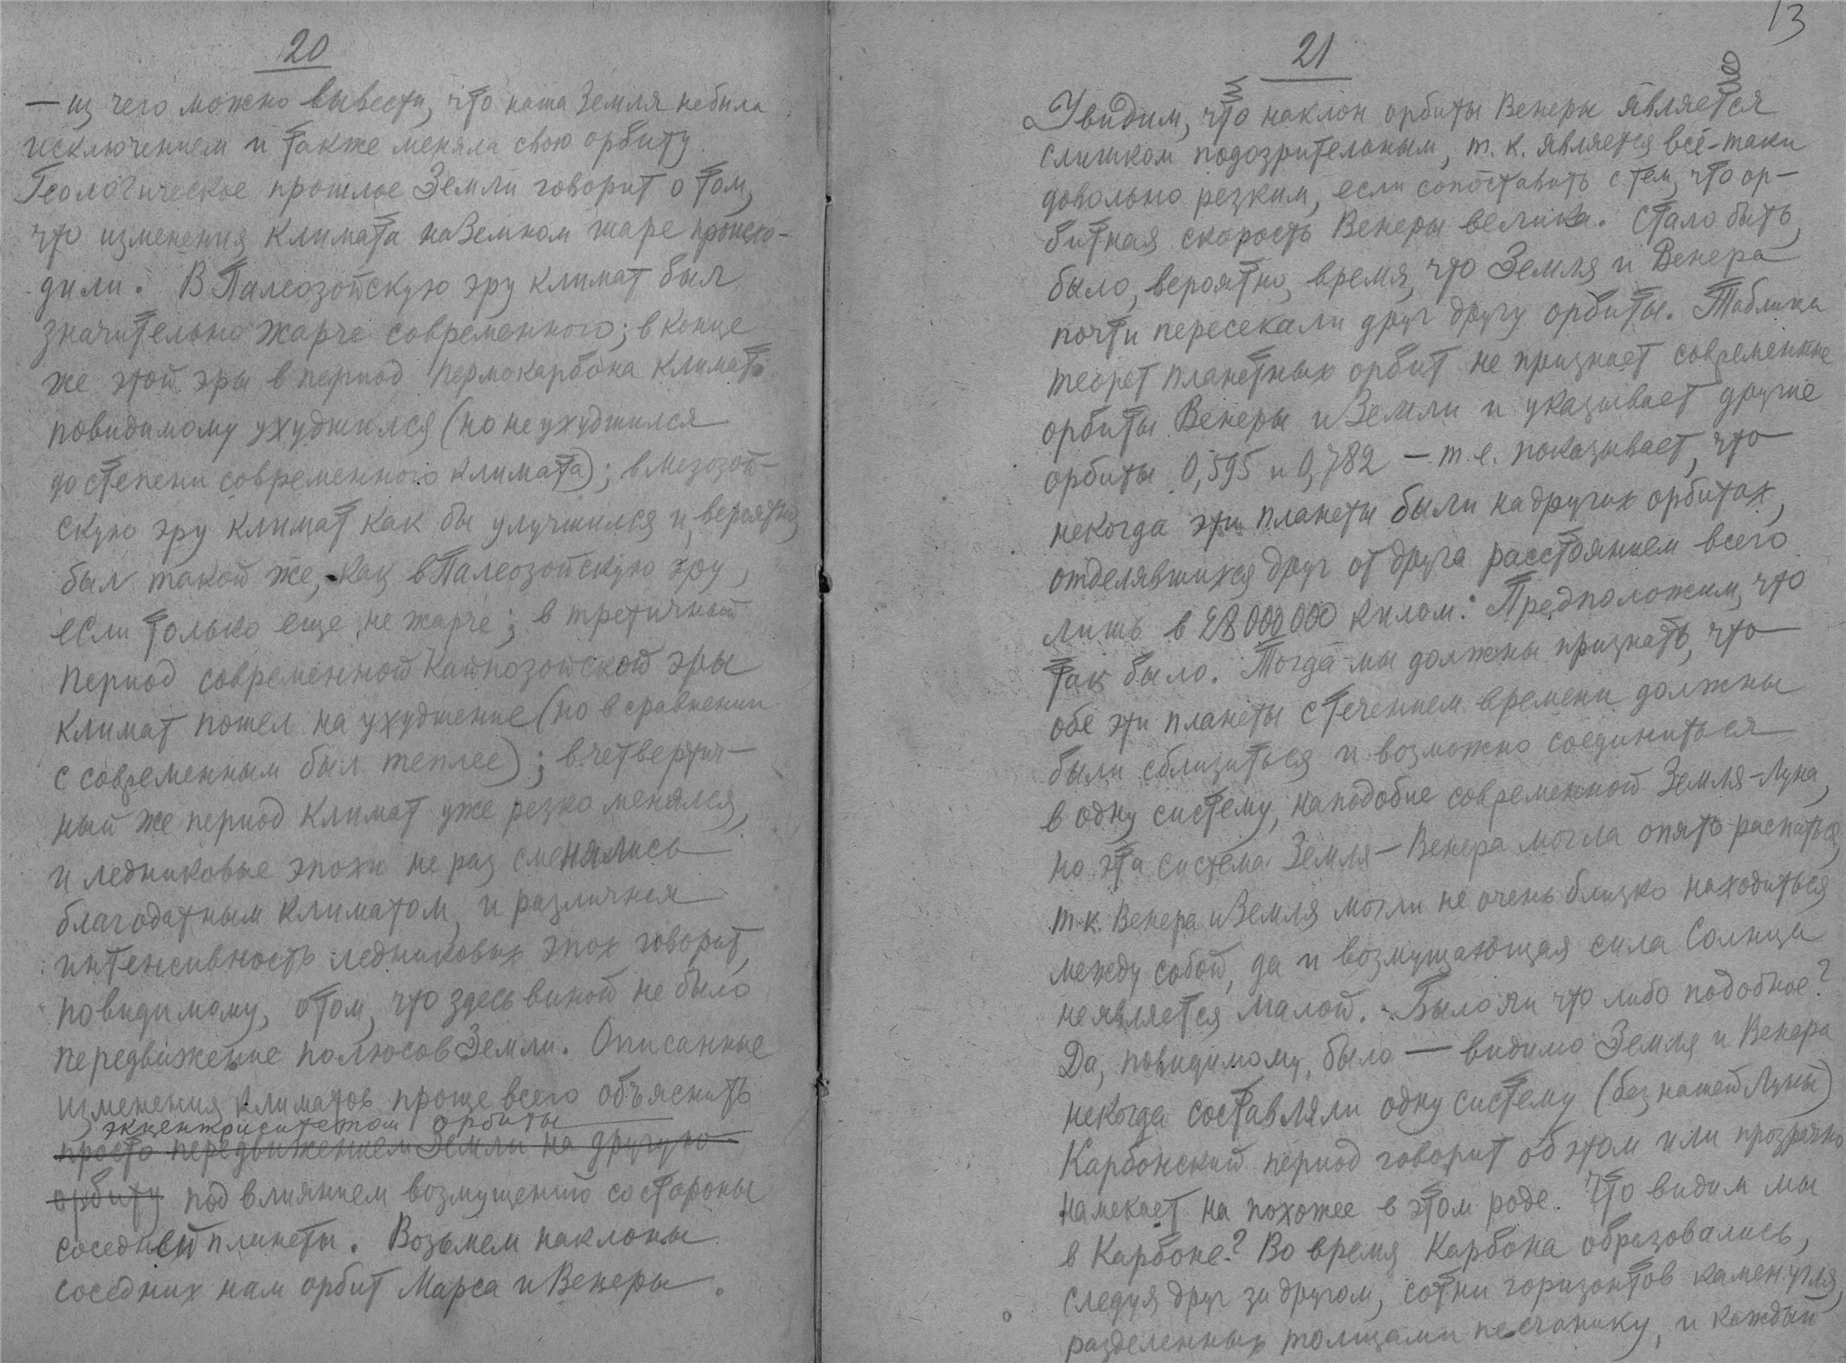 20
— из чего можно вывести, что наша Земля небыла
исключением и также меняла свою орбиту.
Геологическое прошлое Земли говорит о том,
что изменения климата на Земном шаре происхо-
дили. В Палеозойскую эру климат был
значительно жарче современного; в конце
же этой эры в период Пермокарбона климат
повидимому ухудшился (но не ухудшился
до степени современного климата); в мезозой-
скую эру климат как бы улучшился и, вероятно,
был такой же, как в Палеозойскую эру,
если только еще не жарче; в третичный
период современной Кайнозойской эры
климат пошел на ухудшение (но в сравнении
с современным был теплее); в четвертич-
ный же период климат уже резко менялся,
и ледниковые эпохи не раз сменялись
благодатным климатом, и различная
интенсивность ледниковых эпох говорит,
повидимому, о том, что здесь виной не было
передвижение полюсов Земли. Описанные
изменения климатов проще всего объяснить
эксцентриситетом орбиты
просто передвижением Земли на другую
орбиту под влиянием возмущений со стороны
соседней планеты. Возьмем наклоны
соседних нам орбит Марса и Венеры.
13
21
Увидим, что наклон орбиты Венеры является
слишком подозрительным, т.к. является всё-таки
довольно резким, если сопоставить с тем, что ор-
битная скорость Венеры велика. Стало быть,
было, вероятно, время, что Земля и Венера
почти пересекали друг другу орбиты. Таблица
теорет планетных орбит не признает современные
орбиты Венеры и Земли и указывает другие
орбиты 0,595 и 0,782 — т.е. показывает, что
некогда эти планеты были на других орбитах,
отделявшихся друг от друга расстоянием всего
лишь в 28 000 000 килом. Предположим, что
так было. Тогда мы должны признать, что
обе эти планеты с течением времени должны
были сблизиться и возможно соединиться
в одну систему, наподобие современной Земля-Луна,
но эта система Земля — Венера могла опять распаться,
т.к. Венера и Земля могли не очень близко находиться
между собой, да и возмущающая сила Солнца
не является малой. Было ли что либо подобное?
Да, повидимому, было — видимо Земля и Венера
некогда составляли одну систему (без нашей Луны)
Карбонский период говорит об этом или прозрачно
намекает на похожее в этом роде. Что видим мы
в Карбоне? Во время Карбона образовались,
следуя друг за другом, сотни горизонтов камен. угля,
разделенных толщами песчанику, и каждый